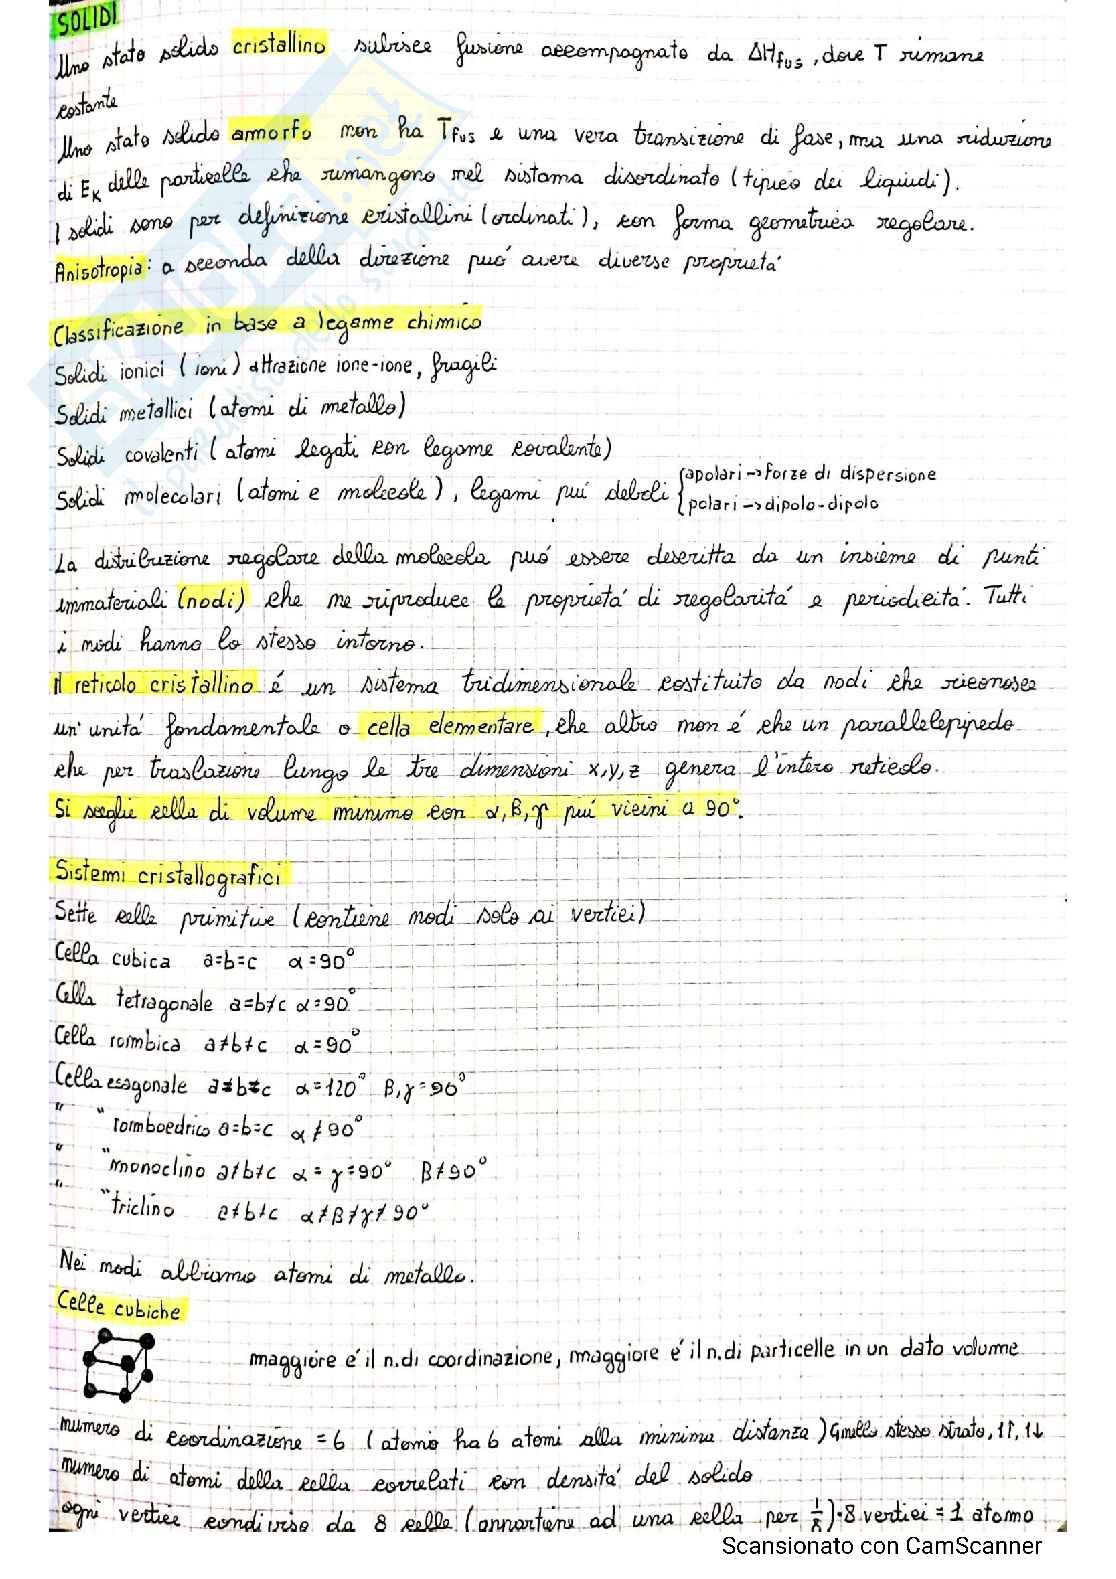 SOLIDI
Uno stato solido cristallino subisce fusione accompagnato da ΔHfus, dove T rimane
costante
Uno stato solido amorfo non ha Tfus e una vera transizione di fase, ma una riduzione
di EK delle particelle che rimangono nel sistama disordinato (tipico dei liquidi).
I solidi sono per definizione cristallini (ordinati), con forma geometrica regolare.
Anisotropia: a seconda della direzione può avere diverse proprietà
Classificazione in base a legame chimico
Solidi ionici (ioni) attrazione ione-ione, fragili
Solidi metallici (atomi di metallo)
Solidi covalenti (atomi legati con legame covalente)
Solidi molecolari (atomi e molecole), legami più deboli { apolari → forze di dispersione
polari → dipolo-dipolo
La distribuzione regolare della molecola può essere descritta da un insieme di punti
immateriali (nodi) che ne riproduce le proprietà di regolarità e periodicità. Tutti
i nodi hanno lo stesso intorno.
Il reticolo cristallino é un sistema tridimensionale costituito da nodi che riconosce
un'unità fondamentale o cella elementare, che altro non é che un parallelepipedo
che per traslazione lungo le tre dimensioni x,y,z genera l'intero reticolo.
Si sceglie cella di volume minimo con α,β,γ più vicini a 90°.
Sistemi cristallografici
Sette celle primitive (contiene nodi solo ai vertici)
Cella cubica a=b=c α=90°
Cella tetragonale a=b≠c α=90°
Cella rombica a≠b≠c α=90°
Cella esagonale a≠b≠c α=120° β,γ=90°
" " romboedrico a=b=c α≠90°
" " monoclino a≠b≠c α=γ=90° β≠90°
" " triclino a≠b≠c α≠β≠γ≠90°
Nei nodi abbiamo atomi di metallo.
Celle cubiche
maggiore é il n.di coordinazione, maggiore é il n.di particelle in un dato volume
numero di coordinazione = 6 (atomo ha 6 atomi alla minima distanza) 4 nello stesso strato, 1↑, 1↓
numero di atomi della cella correlati con densità del solido
ogni vertice condiviso da 8 celle (appartiene ad una cella per 1/8)·8 vertici = 1 atomo
Scansionato con CamScanner